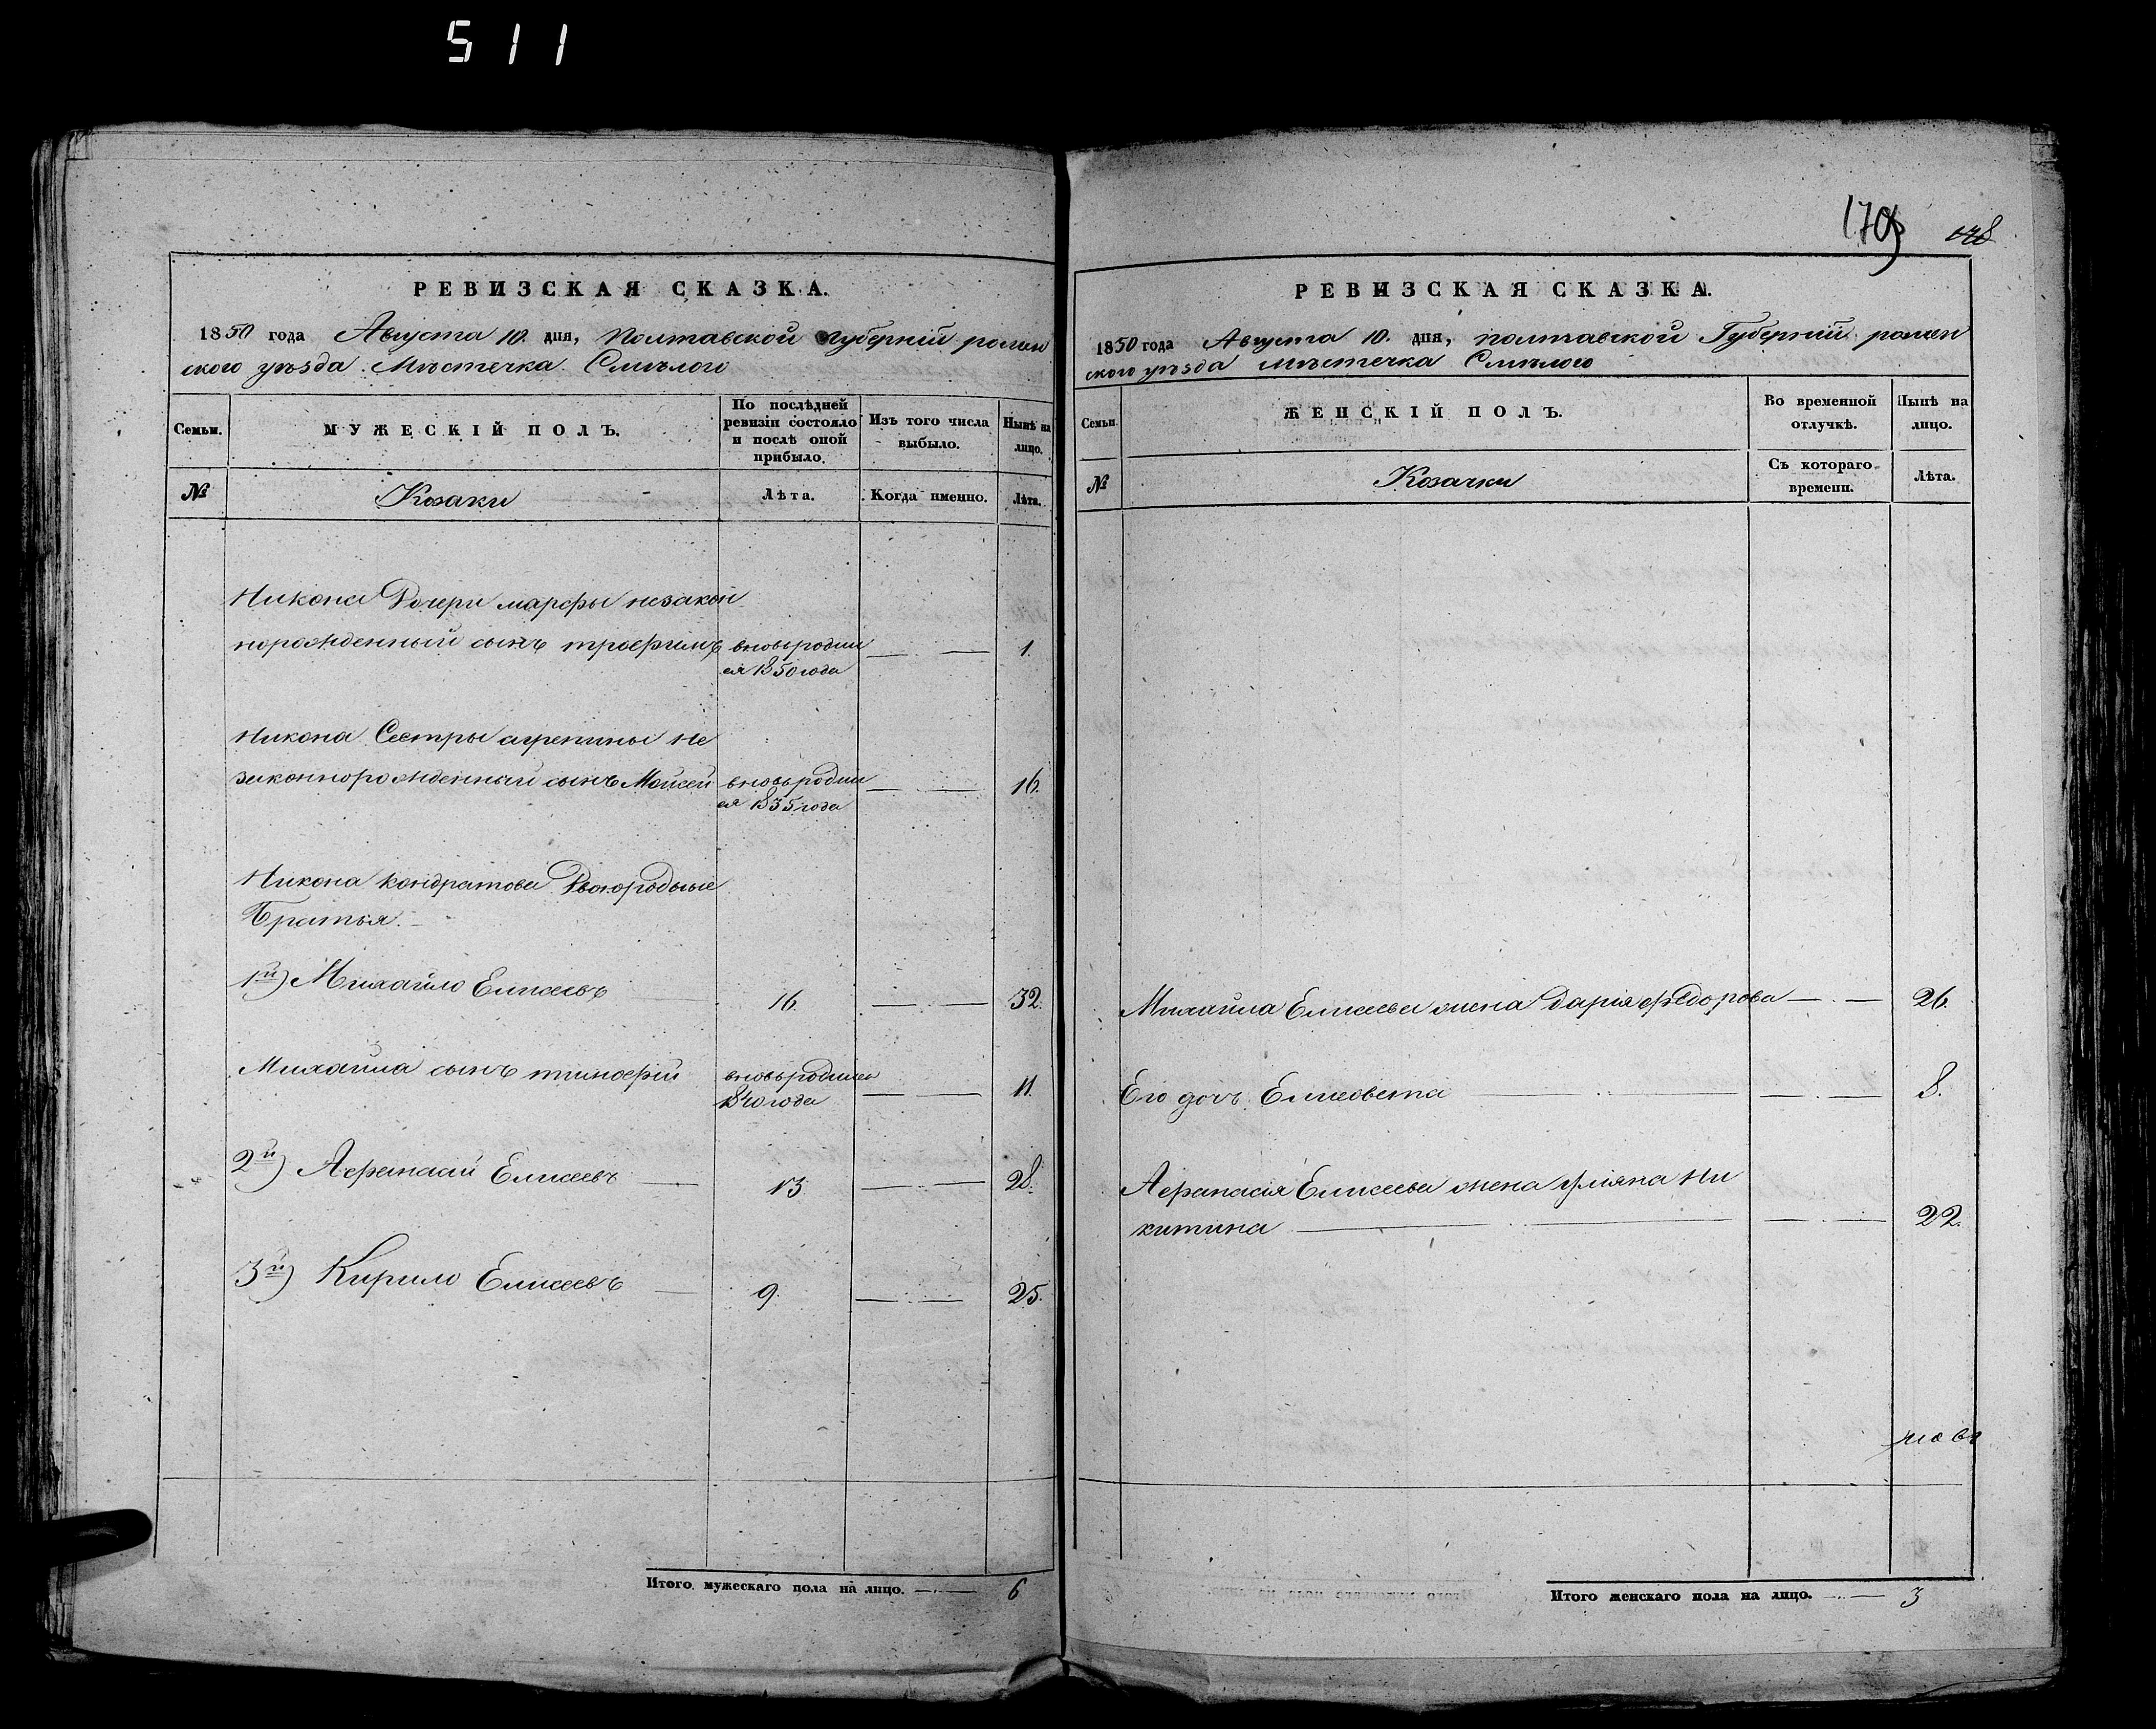 511
179 178
РЕВИЗСКАЯ СКАЗКА.
1850 года Августа 10. дня, Полтавской губерній ромен
ского уѣзда Мѣстечка Смѣлого
Семьи. МУЖЕСКІЙ ПОЛЪ. По послѣдней ревизіи состояло и послѣ оной прибыло. Изъ того числа выбыло. Нынѣ на лицо.
№ Козаки Лѣта. Когда именно. Лѣта.
Никона Дочери марфы незакон
норожденный сынъ трофимъ вновь родил 1.
ся 1850 года
Никона Сестры агрепины не
законнорожденный сынъ Мойсей вновь родил 16.
ся 1835 года
Никона кондратова Двоюродные
Братья.
1й) Михайло Елисеевъ 16. 32.
Михайла сынъ тимофій вновь родился 11.
1840 года
2й) Афанасій Елисеевъ 13 28.
3й) Кирило Елисеевъ 9. 25.
Итого мужескаго пола на лицо. 6
РЕВИЗСКАЯ СКАЗКА.
1850 года Августа 10. дня, полтавской Губерній ромен
ского уѣзда мѣстечка Смѣлого
Семьи. ЖЕНСКІЙ ПОЛЪ. Во временной отлучкѣ. Нынѣ на лицо.
№ Козачки Съ котораго времени. Лѣта.
Михайла Елисеева жена дарія федорова 26.
Его дочь Елисавета 8.
Афанасія Елисеева жена уліяна Ни
китина 22.
Итого женскаго пола на лицо. 3